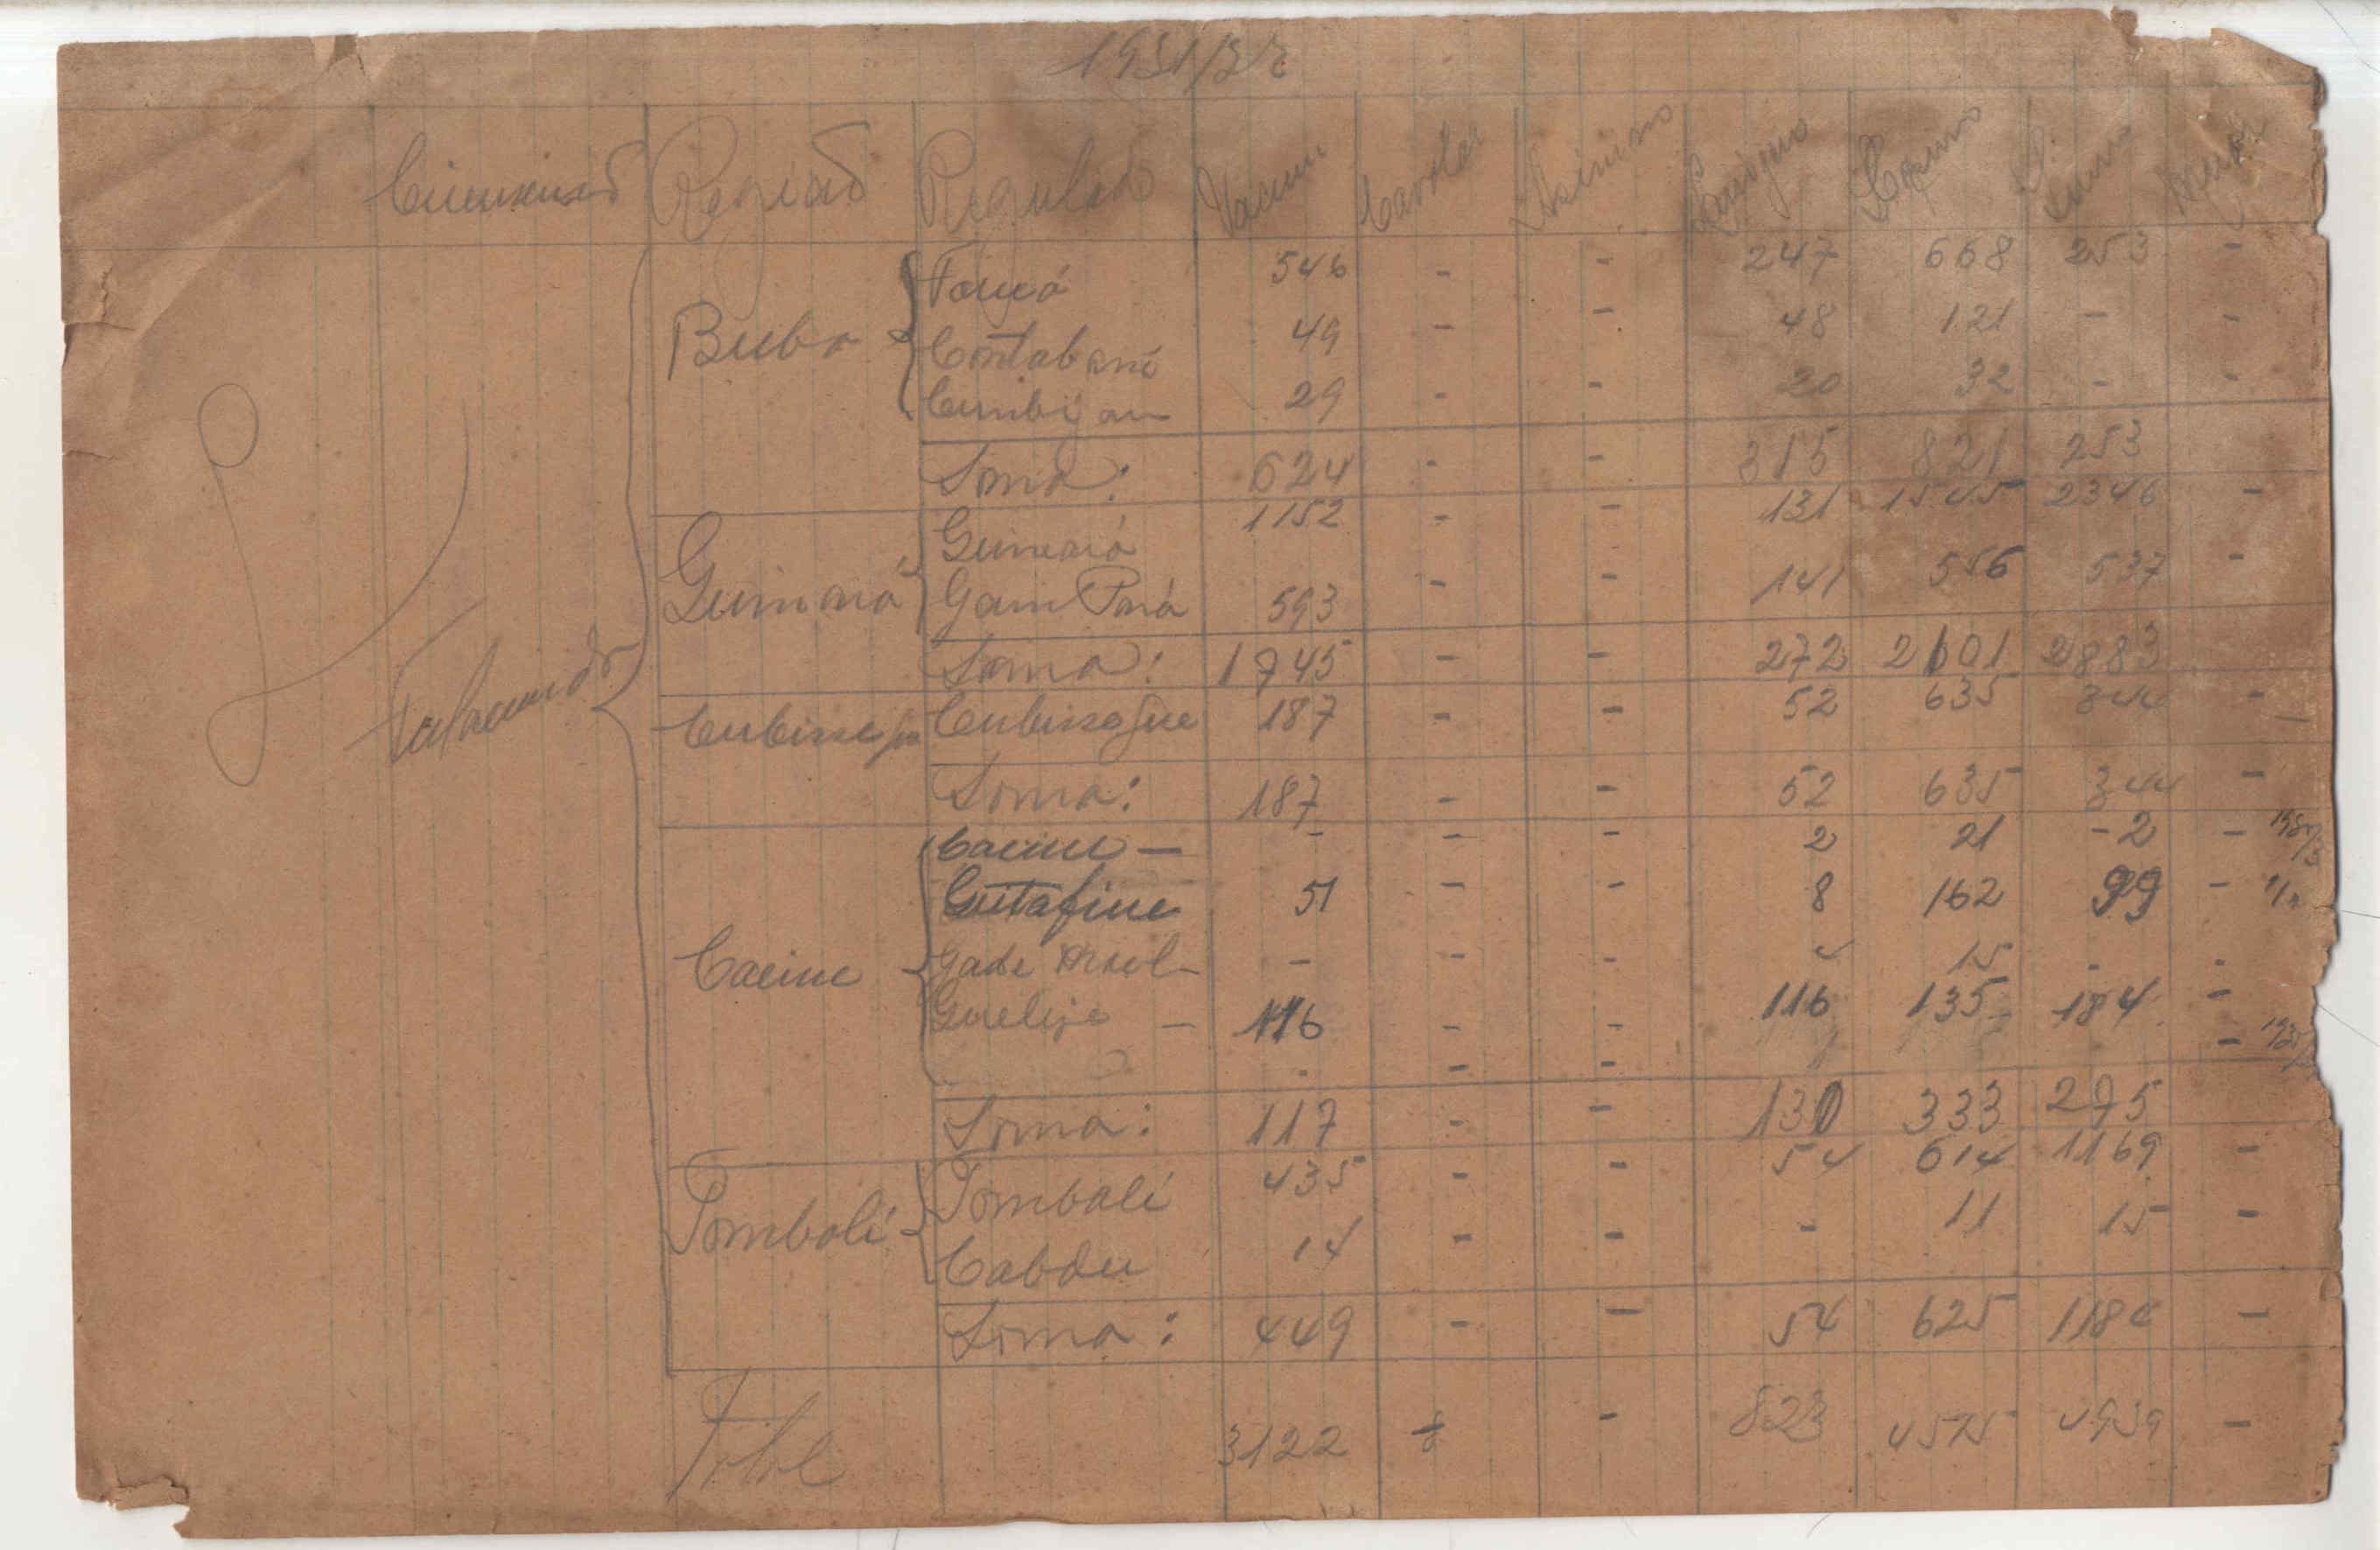 1951/52
Circunscrição Região Regulado Vacum Cavalar Asinino Lanígero Caprino Suíno
Forreá 546 - - 247 668 253 -
Buba Contabané 49 - - 48 121 - -
Cumbijam 29 - - 20 32 - -
Soma: 624 - - 315 821 253
Guinará 1152 - - 131 1545 2346 -
Guinará Gam Pará 593 - - 141 556 537 -
Soma: 1745 - - 272 2101 2883
Fulacunda
Cubisseque Cubisseque 187 - - 52 635 344 -
Soma: 187 - - 52 635 344 -
Cacine - - - - 2 21 - 2 -
Guitafine 51 - - 8 162 99 -
Cacine Gade - - - - 4 15 - -
Guelije - 116 - - 116 135 184 -
- - - -
Soma: 117 - - 130 333 275
Tombali Tombali 435 - - 54 614 1169 -
Cabdu 14 - - - 11 15 -
Soma: 449 - - 54 625 1184 -
Total 3122 - - 823 4515 4939 -